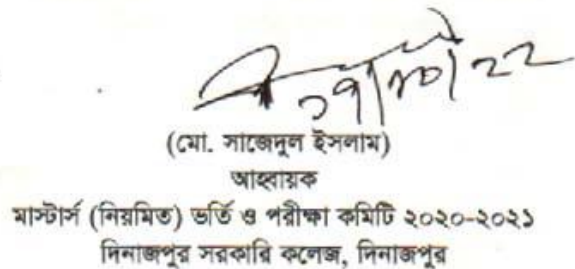 (মো. সাজেদুল ইসলাম)
আহ্বায়ক
মাস্টার্স (নিয়মিত) ভর্তি ও পরীক্ষা কমিটি ২০২০-২০২১
দিনাজপুর সরকারি কলেজ, দিনাজপুর